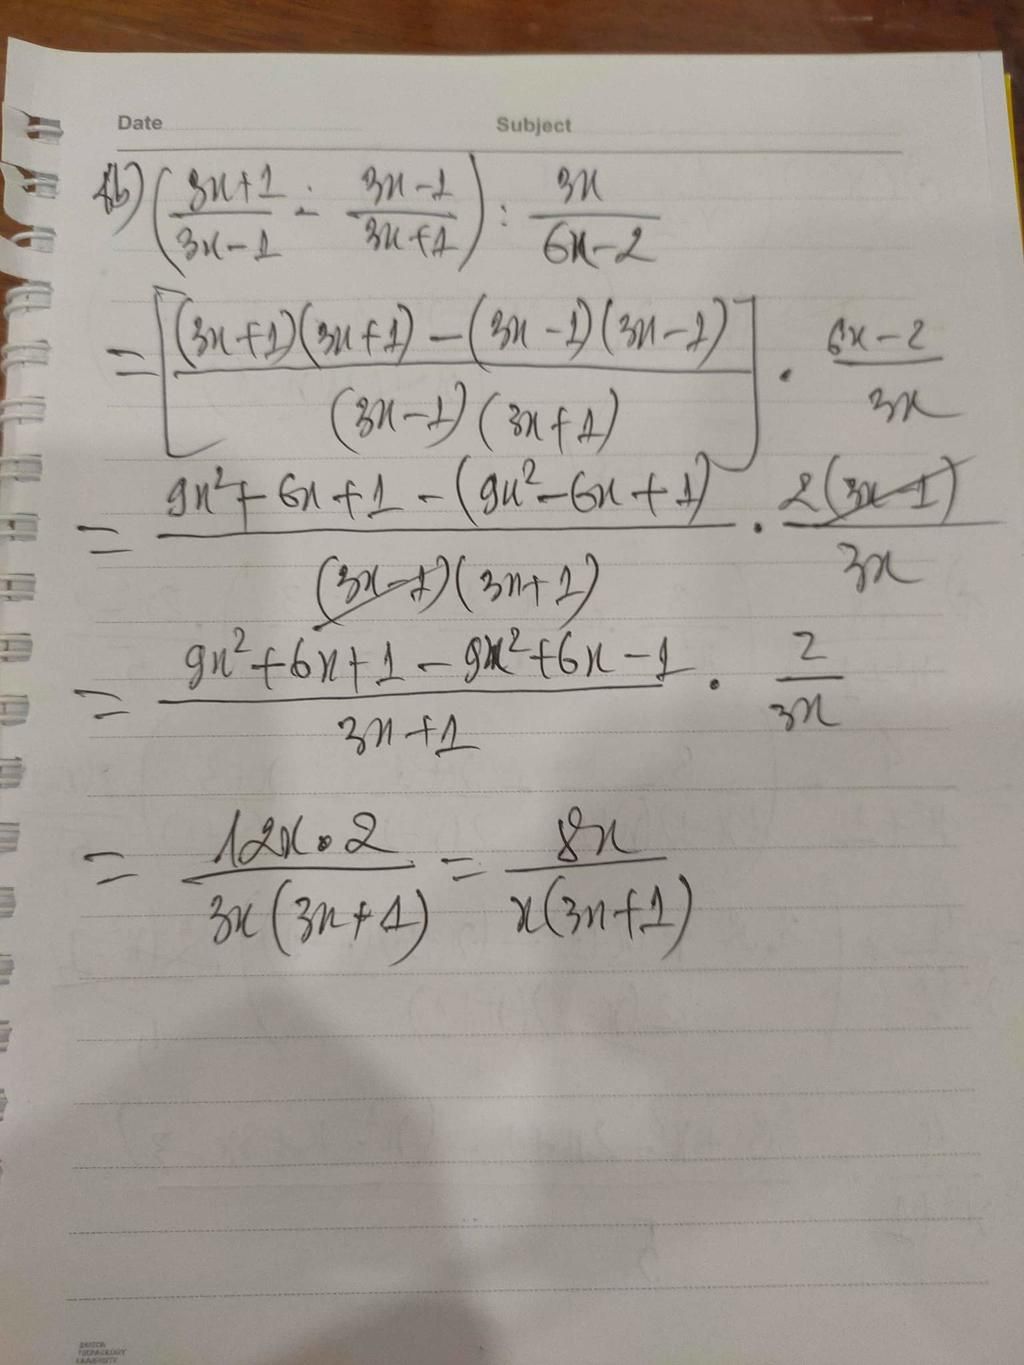 Date Subject
1b) ( (3x+1)/(3x-1) - (3x-1)/(3x+1) ) : 3x/(6x-2)
= [ ((3x+1)(3x+1) - (3x-1)(3x-1))/((3x-1)(3x+1)) ] . (6x-2)/(3x)
= (9x²+6x+1-(9x²-6x+1))/((3x-1)(3x+1)) . 2(3x-1)/(3x)
= (9x²+6x+1-9x²+6x-1)/(3x+1) . 2/(3x)
= (12x.2)/(3x(3x+1)) = 8x/(x(3x+1))